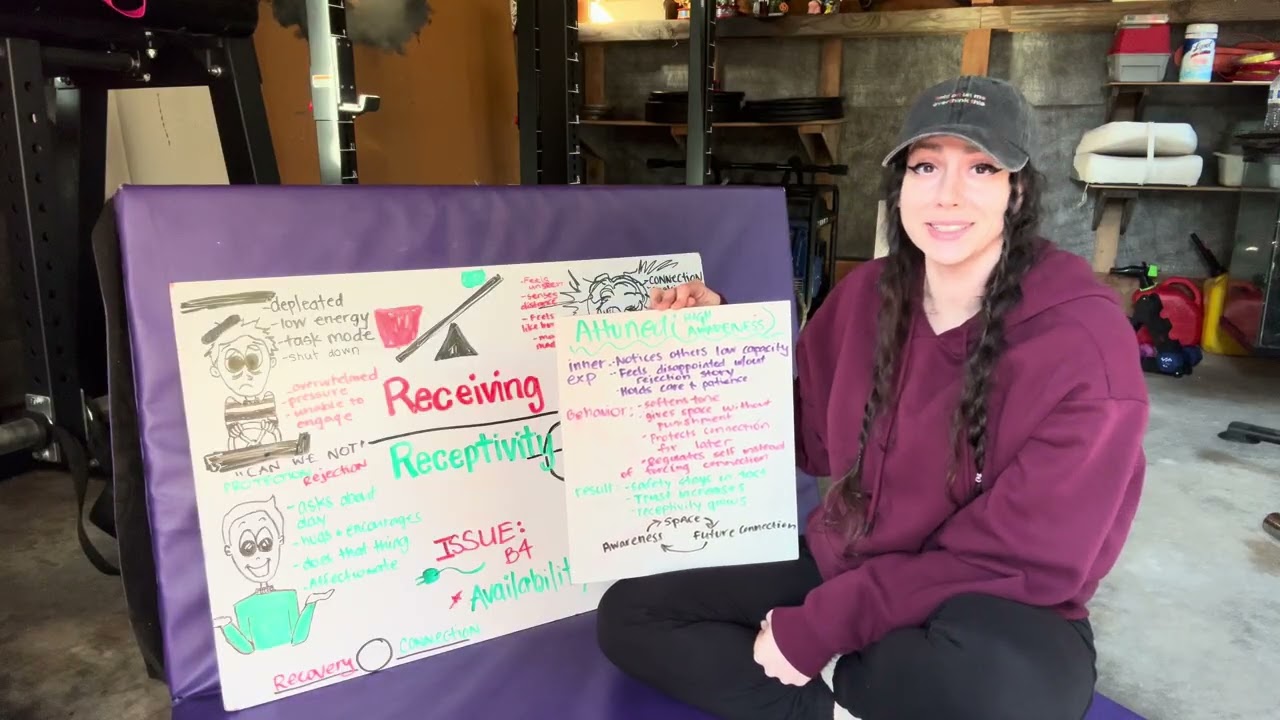 -depleted
-low energy
-task mode
-shut down
-overwhelmed
-pressure
-unable to
engage
"CAN WE NOT"
Rejection
Receiving
Receptivity
-Feels
unseen
-senses
distance
-Feels
-CONNECTION
-asks about
day
-hugs + encourages
-does that thing
-Affectionate
ISSUE:
B4
*Availability
Recovery
CONNECTION
Attuned (HIGH
AWARENESS)
inner
exp
-Notices others low capacity
-Feels disappointed w/out
rejection story
-Holds care + patience
Behavior:
-softens tone
-gives space without
punishment
-Protects connection
for later
-Regulates self instead
of forcing connection
result:
-safety stays in tact
-Trust increases
-receptivity grows
Space
Awareness
Future connection